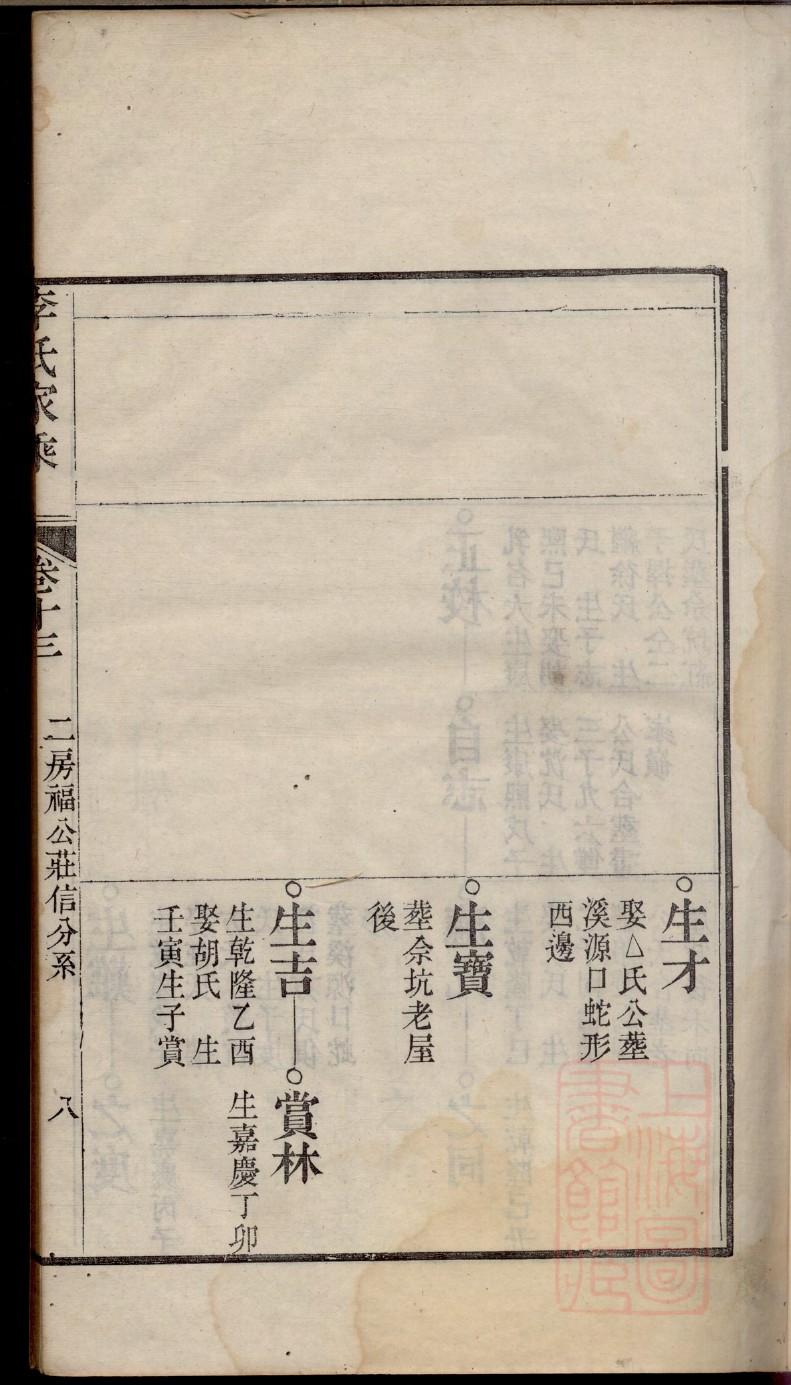 生才
娶△氏公塟
溪源口蛇形
西邊
生寶
塟佘坑老屋
後
生吉
生乾隆乙酉
娶胡氏 生
壬寅生子賞
賞林
生嘉慶丁卯
李氏家乘
卷十三
二房福公莊信分系
八
上海圖
書館藏